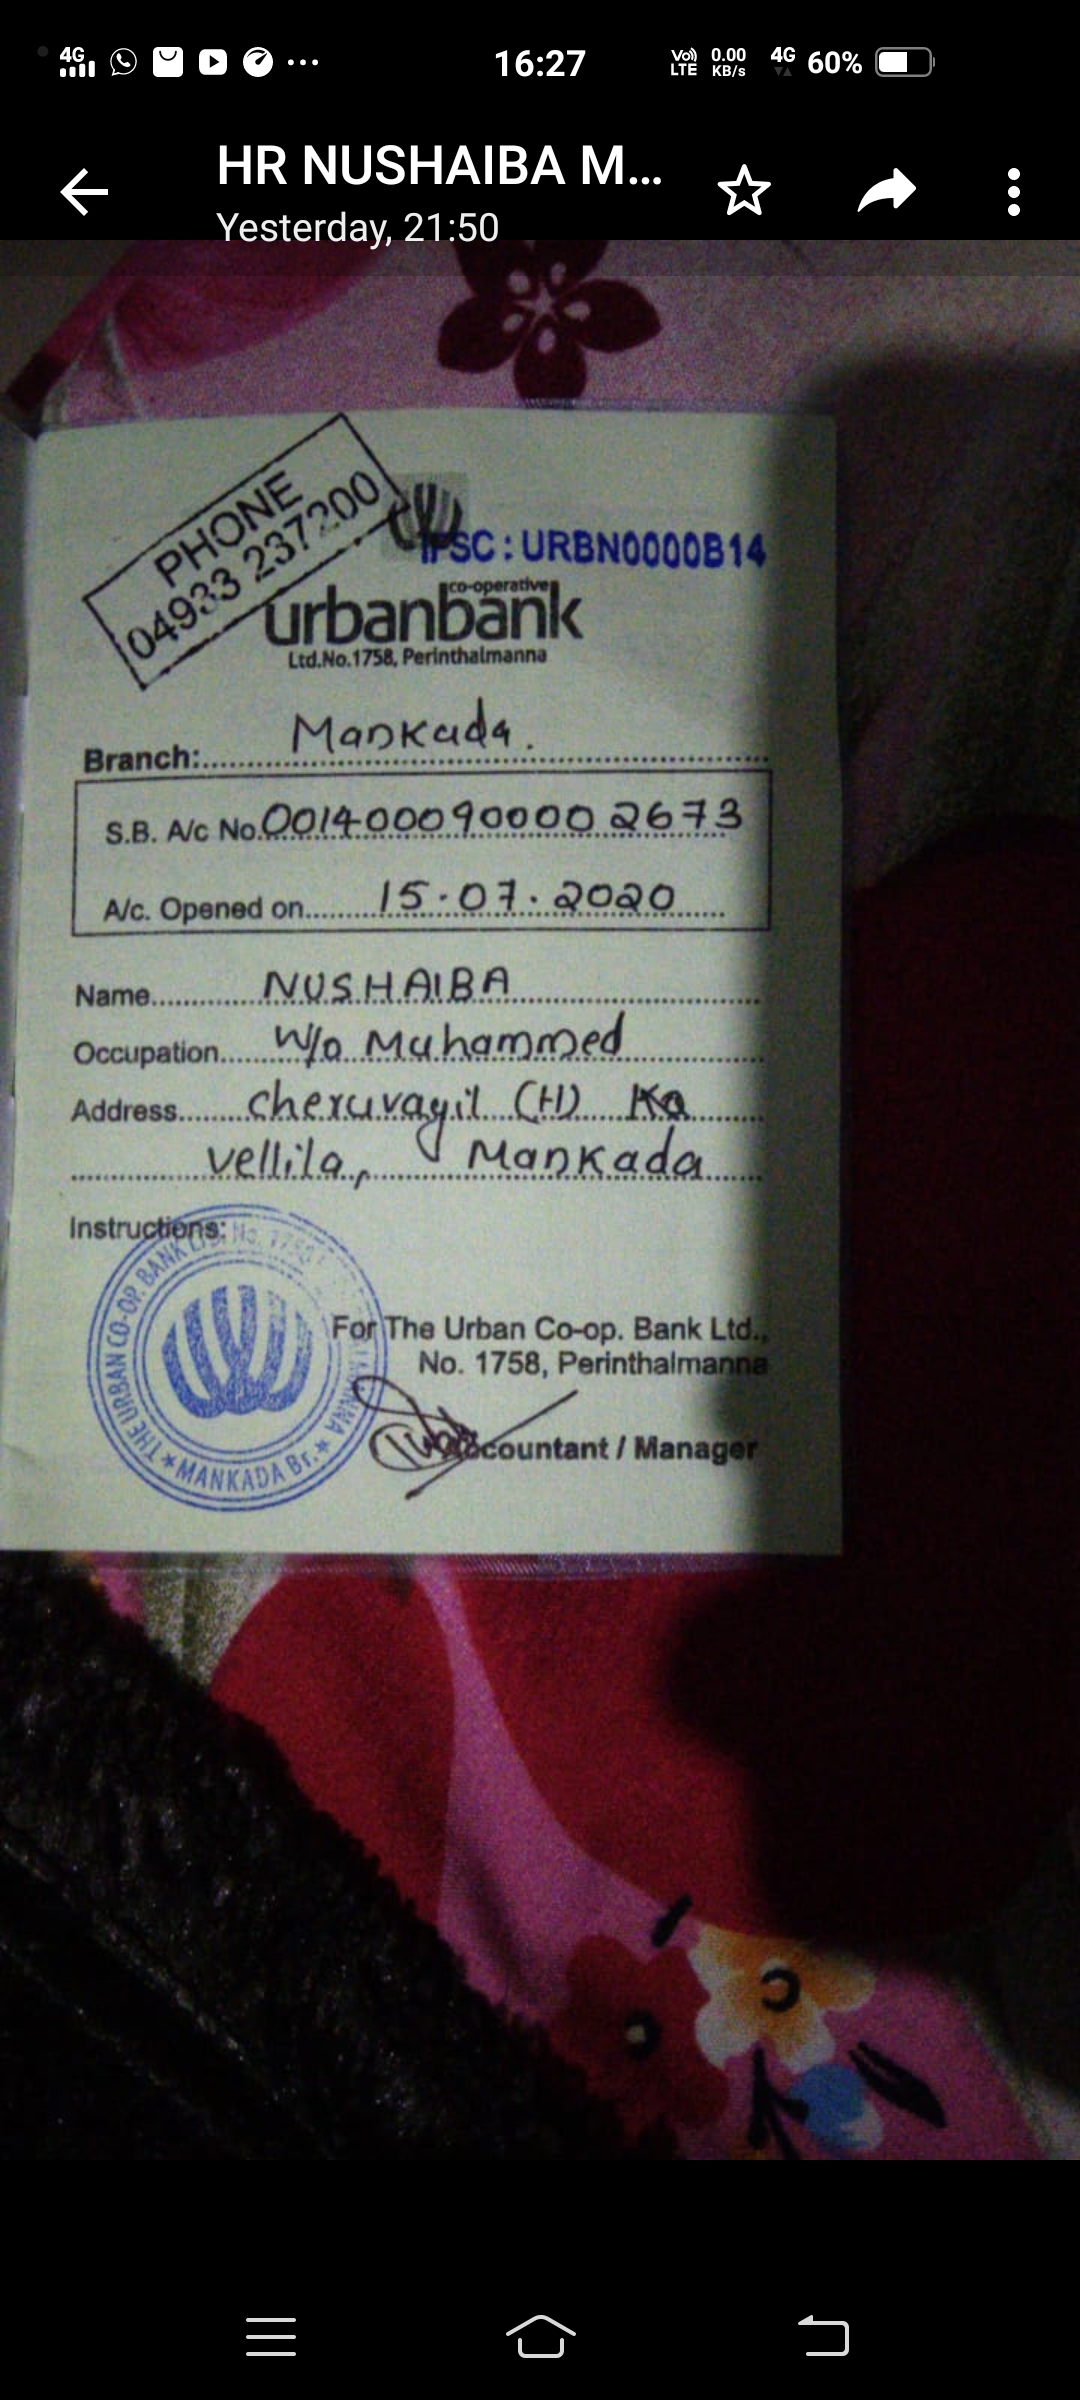 4G
16:27
Vo) LTE
0.00 KB/s
4G
60%
HR NUSHAIBA M...
Yesterday, 21:50
PHONE
04933 237200
IFSC : URBN0000B14
co-operative
urbanbank
Ltd.No.1758, Perinthalmanna
Branch: Mankada.
S.B. A/c No. 001400090000 2673
A/c. Opened on 15.07.2020
Name NUSHAIBA
Occupation W/o Muhammed
Address cheruvayil (H)
vellila, Mankada
Instructions:
THE URBAN CO-OP. BANK LTD. No. 1758
★ MANKADA Br. ★
For The Urban Co-op. Bank Ltd.,
No. 1758, Perinthalmanna
Accountant / Manager